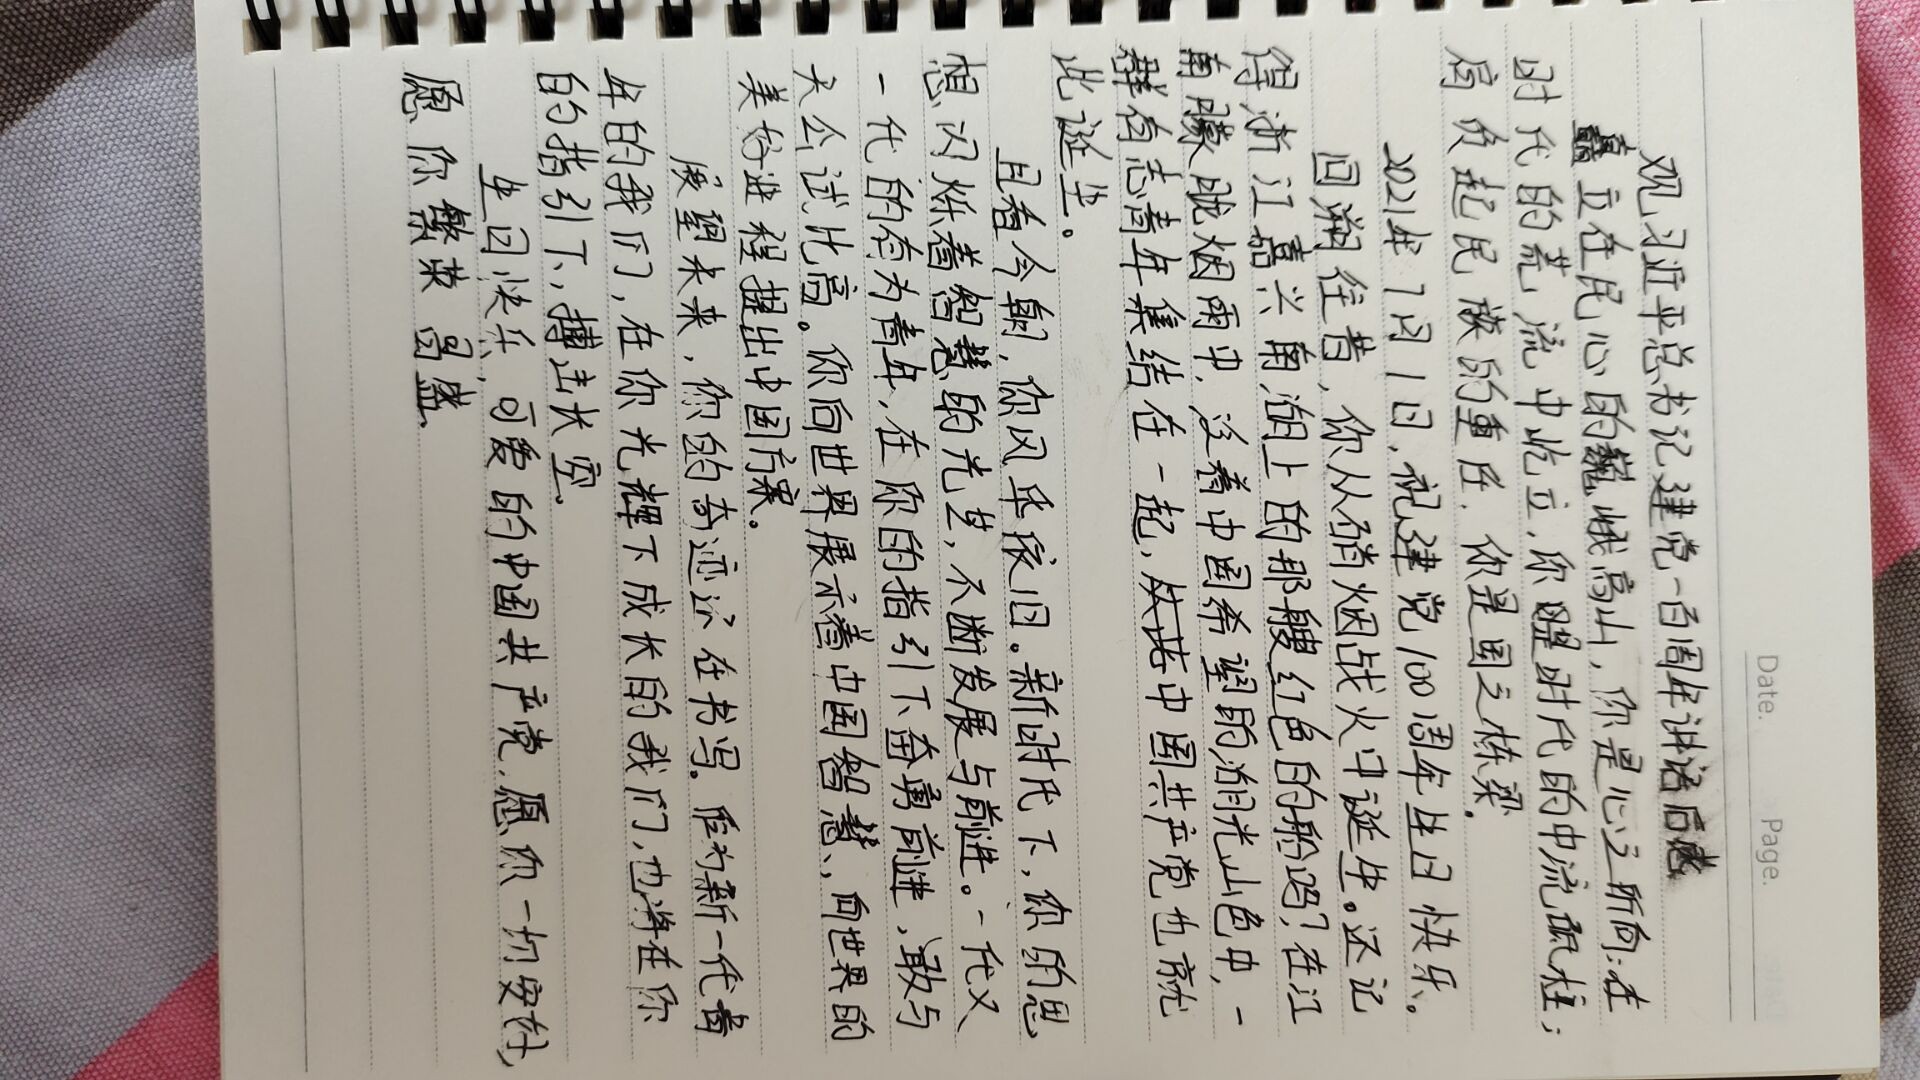 Date. Page.
观习近平总书记建党一百周年讲话后感
矗立在民心的巍峨高山，你是心之所向；在
时代的荒流中屹立，你是时代的中流砥柱；
肩负起民族的重任，你是国之栋梁。
2021年7月1日，祝建党100周年生日快乐。
回溯往昔，你从硝烟战火中诞生。还记
得浙江嘉兴南湖上的那艘红色的船吗？在江
南朦胧烟雨中，没着中国希望的湖光山色中，一
群有志青年集结在一起，中国共产党也就
此诞生。
且看今朝，你风华依旧。新时代下，你的思
想闪烁着智慧的光芒，不断发展与前进。一代又
一代的有为青年，在你的指引下奋勇前进，敢与
天公试比高。你向世界展示着中国智慧、向世界的
美好进程提出中国方案。
展望未来，你的奇迹还在书写。作为新一代青
年的我们，在你光辉下成长的我们，也将在你
的指引下，搏击长空。
生日快乐，可爱的中国共产党，愿你一切安好，
愿你繁荣昌盛。